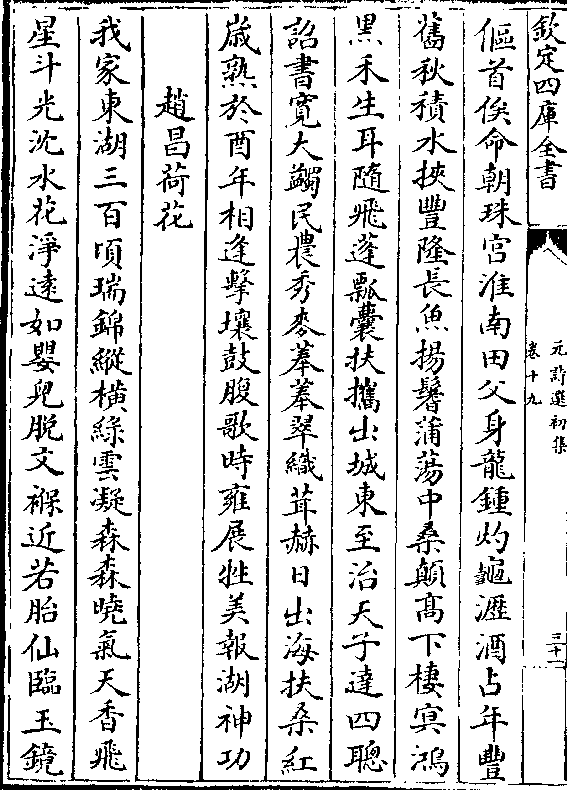 欽定四庫全書
元詩選初集
卷十九
三十一
傴首俟命朝珠宮淮南田父身龍鍾灼龜瀝酒占年豐
舊秋積水挾豐隆長魚揚鬐蒲蕩中桑顛高下棲㝠鴻
黒禾生耳隨飛蓬瓢囊扶攜出城東至治天子達四聰
詔書寛大蠲民農秀麥芃芃翠織茸赫日出海扶桑紅
嵗熟於酉年相逢擊壤鼓腹歌時雍展牲美報湖神功
趙昌荷花
我家東湖三百頃瑞錦縱横綠雲凝森森曉氣天香飛
星斗光沈水花淨逺如嬰兒脱文褓近若胎仙臨玉鏡